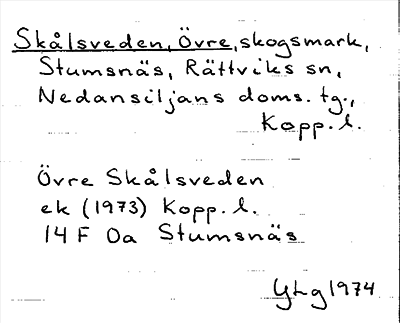 Skålsveden, Övre, skogsmark,
Stumsnäs, Rättviks sn,
Nedansiljans doms. tg.,
Kopp. l.
Övre Skålsveden
ek (1973) Kopp. l.
14 F 0a Stumsnäs
YLg 1974